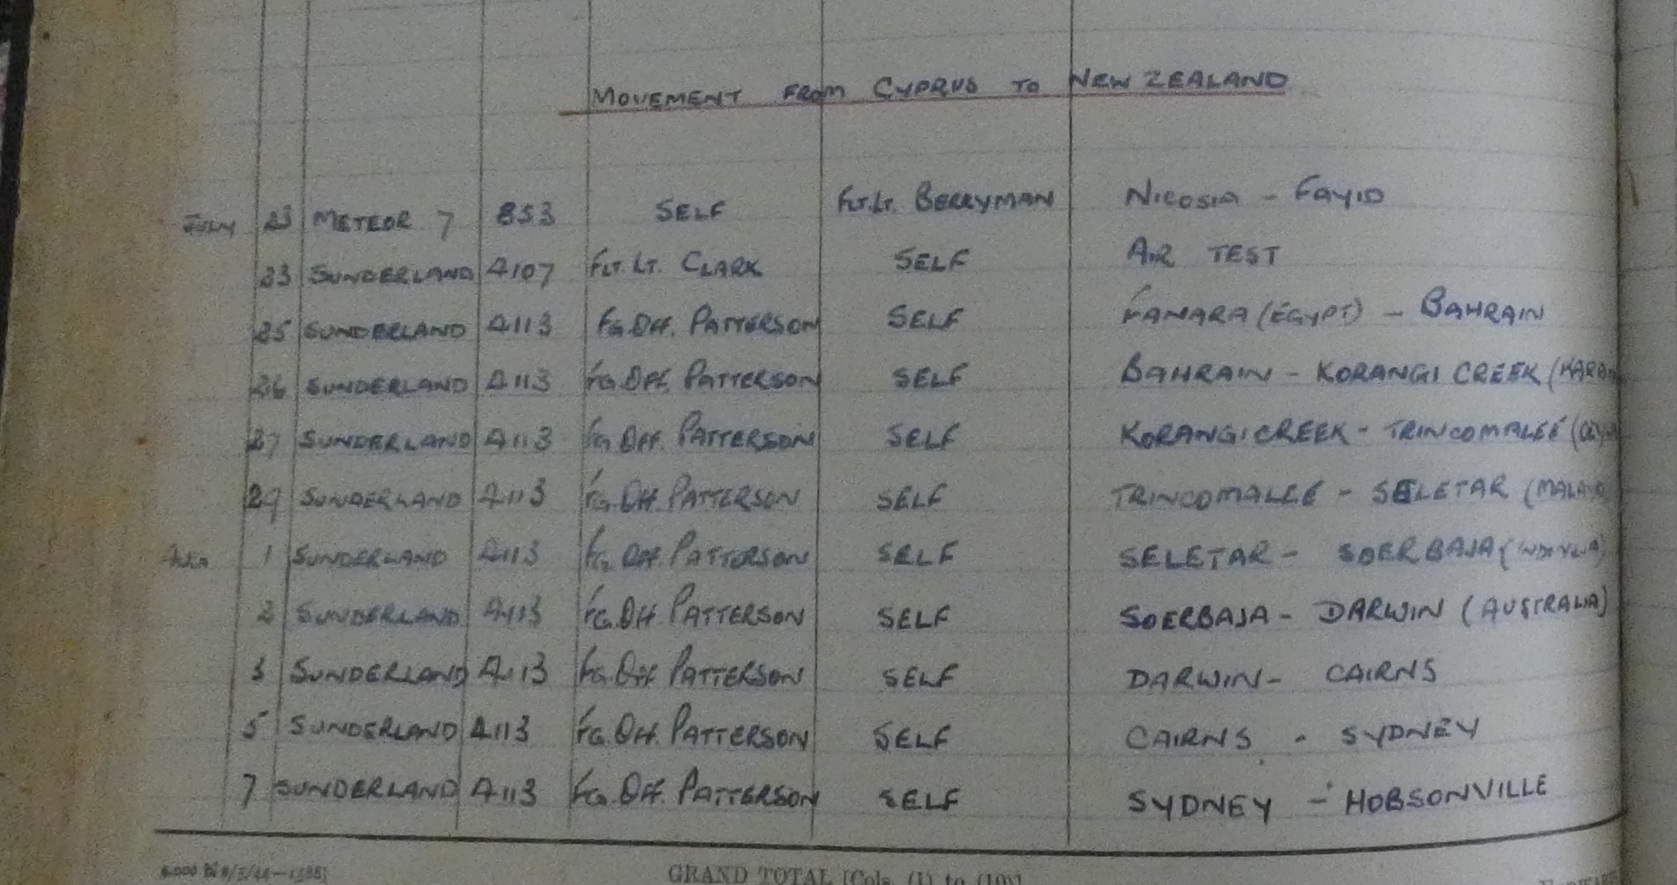 MOVEMENT FROM CYPRUS TO NEW ZEALAND
JULY 23 METEOR 7 853 SELF FLT.LT. BERRYMAN NICOSIA - FAYID
23 SUNDERLAND 4107 FLT.LT. CLARK SELF AIR TEST
25 SUNDERLAND 4113 FG.OFF. PATTERSON SELF FANARA (EGYPT) - BAHRAIN
26 SUNDERLAND 4113 FG.OFF. PATTERSON SELF BAHRAIN - KORANGI CREEK
27 SUNDERLAND 4113 FG.OFF. PATTERSON SELF KORANGI CREEK - TRINCOMALEE
29 SUNDERLAND 4113 FG.OFF. PATTERSON SELF TRINCOMALEE - SELETAR
1 SUNDERLAND 4113 FG.OFF. PATTERSON SELF SELETAR - SOERBAJA
2 SUNDERLAND 4113 FG.OFF. PATTERSON SELF SOERBAJA - DARWIN (AUSTRALIA)
3 SUNDERLAND 4113 FG.OFF PATTERSON SELF DARWIN - CAIRNS
5 SUNDERLAND 4113 FG.OFF. PATTERSON SELF CAIRNS - SYDNEY
7 SUNDERLAND 4113 FG.OFF. PATTERSON SELF SYDNEY - HOBSONVILLE
GRAND TOTAL [Cols. (1) to (10)]